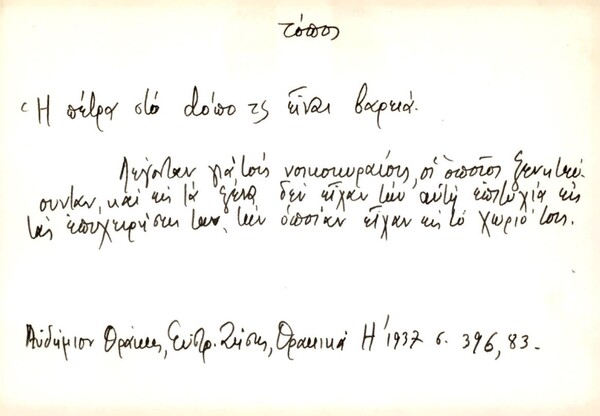 τόπος
Ἡ πέτρα στό τόπο τς εἶναι βαρειά.
Λέγονταν γιά τούς νοικοκυραίους, οἱ ὁποῖοι ξενιτεύ-
ουνταν, και εἰς τά ξένα δεν εἶχαν τήν αὐτή ἐπιτυχία εἰς
τάς ἐπιχειρήσεις των, τήν ὁποίαν εἶχαν εἰς τό χωριό τους.
Αὐδήμιον Θράκης, Εὐστρ. Ζήσης, Θρακικά Η΄ 1937 σ. 396, 83.